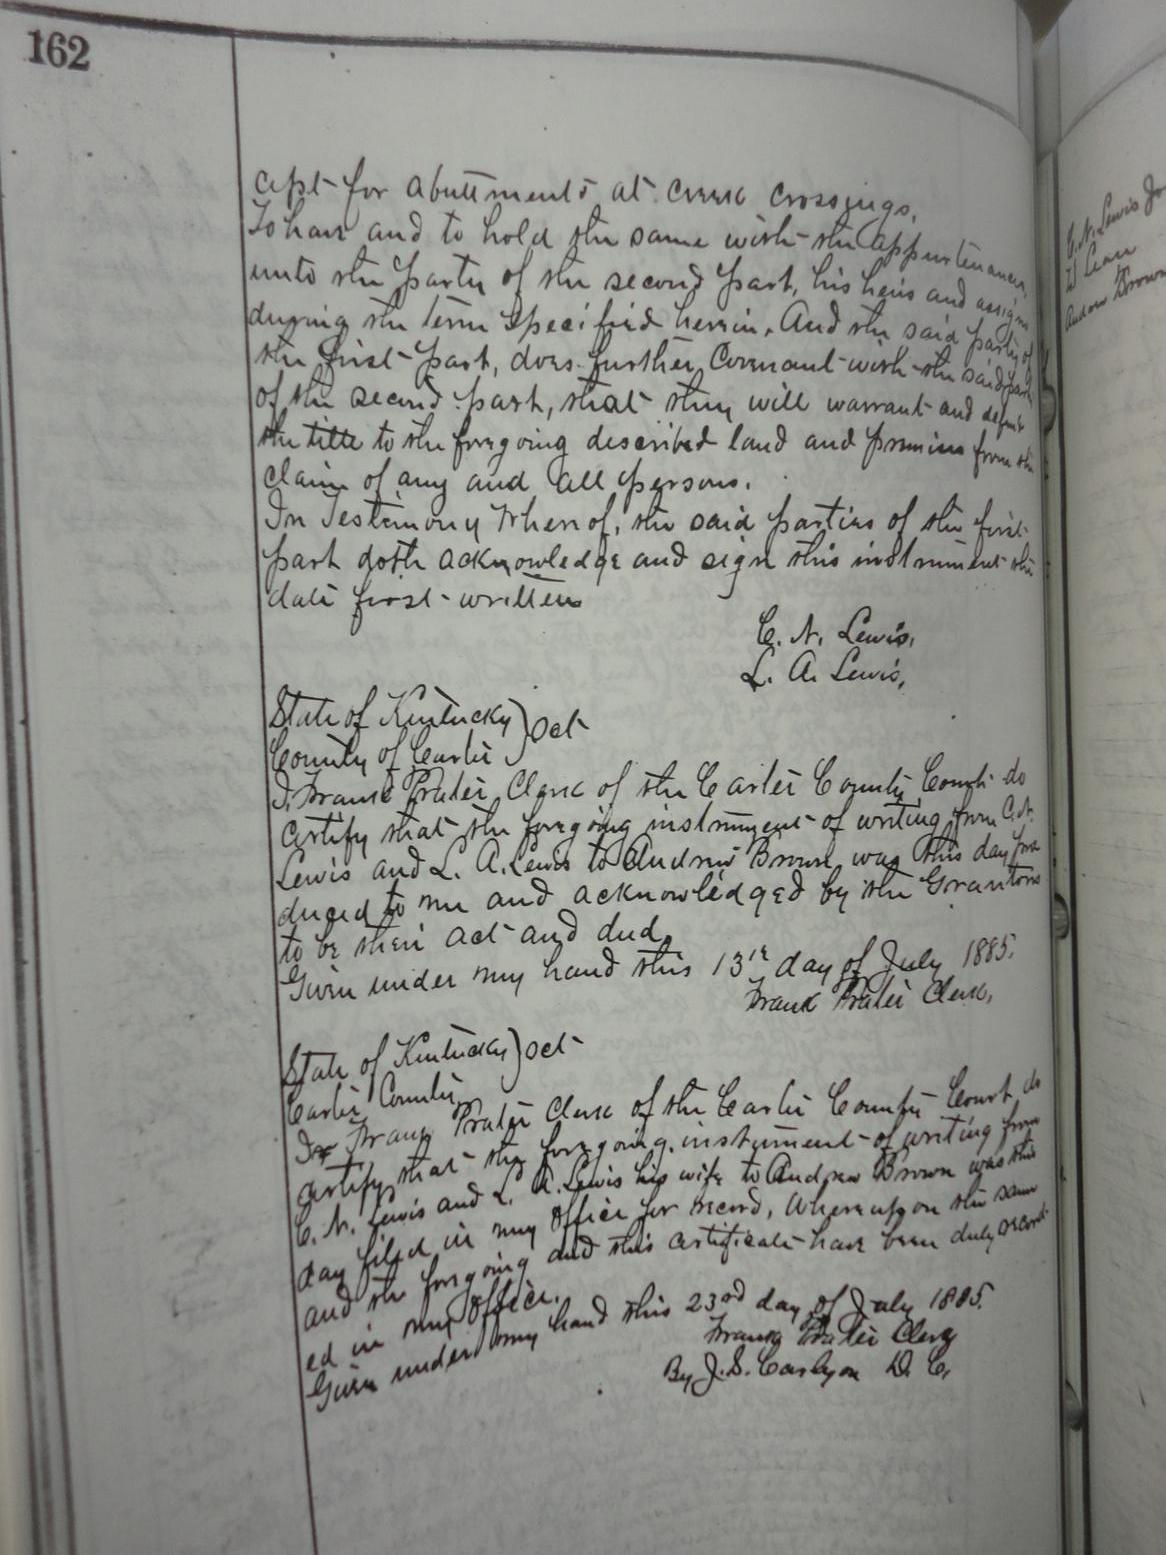 162
cept for abuttments at creek crossings,
To have and to hold the same with the appurtenances,
unto the party of the second part, his heirs and assigns
during the term specified herein. And the said party of
the first part, does further Covenant with the said part
of the second part, that they will warrant and defend
the title to the foregoing described land and premises from the
claim of any and all persons.
In Testimony Whereof, the said parties of the first
part doth acknowledge and sign this instrument the
date first written
C. N. Lewis,
L. A. Lewis,
State of Kentucky ) Sct
County of Carter
I, Frank Prater Clerk of the Carter County Court do
certify that the foregoing instrument of writing from C. N.
Lewis and L. A. Lewis to Andrew Brown was this day pro
duced to me and acknowledged by the Grantors
to be their act and deed.
Given under my hand this 13th day of July 1885.
Frank Prater Clerk,
State of Kentucky ) Sct
Carter County
I Frank Prater Clerk of the Carter County Court, do
certify that the foregoing instrument of writing from
C. N. Lewis and L. A. Lewis his wife to Andrew Brown was this
day filed in my office for record, Whereupon the same
and the foregoing and this certificate have been duly record
ed in my office.
Given under my hand this 23rd day of July 1885.
Frank Prater Clerk
By J. S. D. C.
C. N. Lewis
Brown